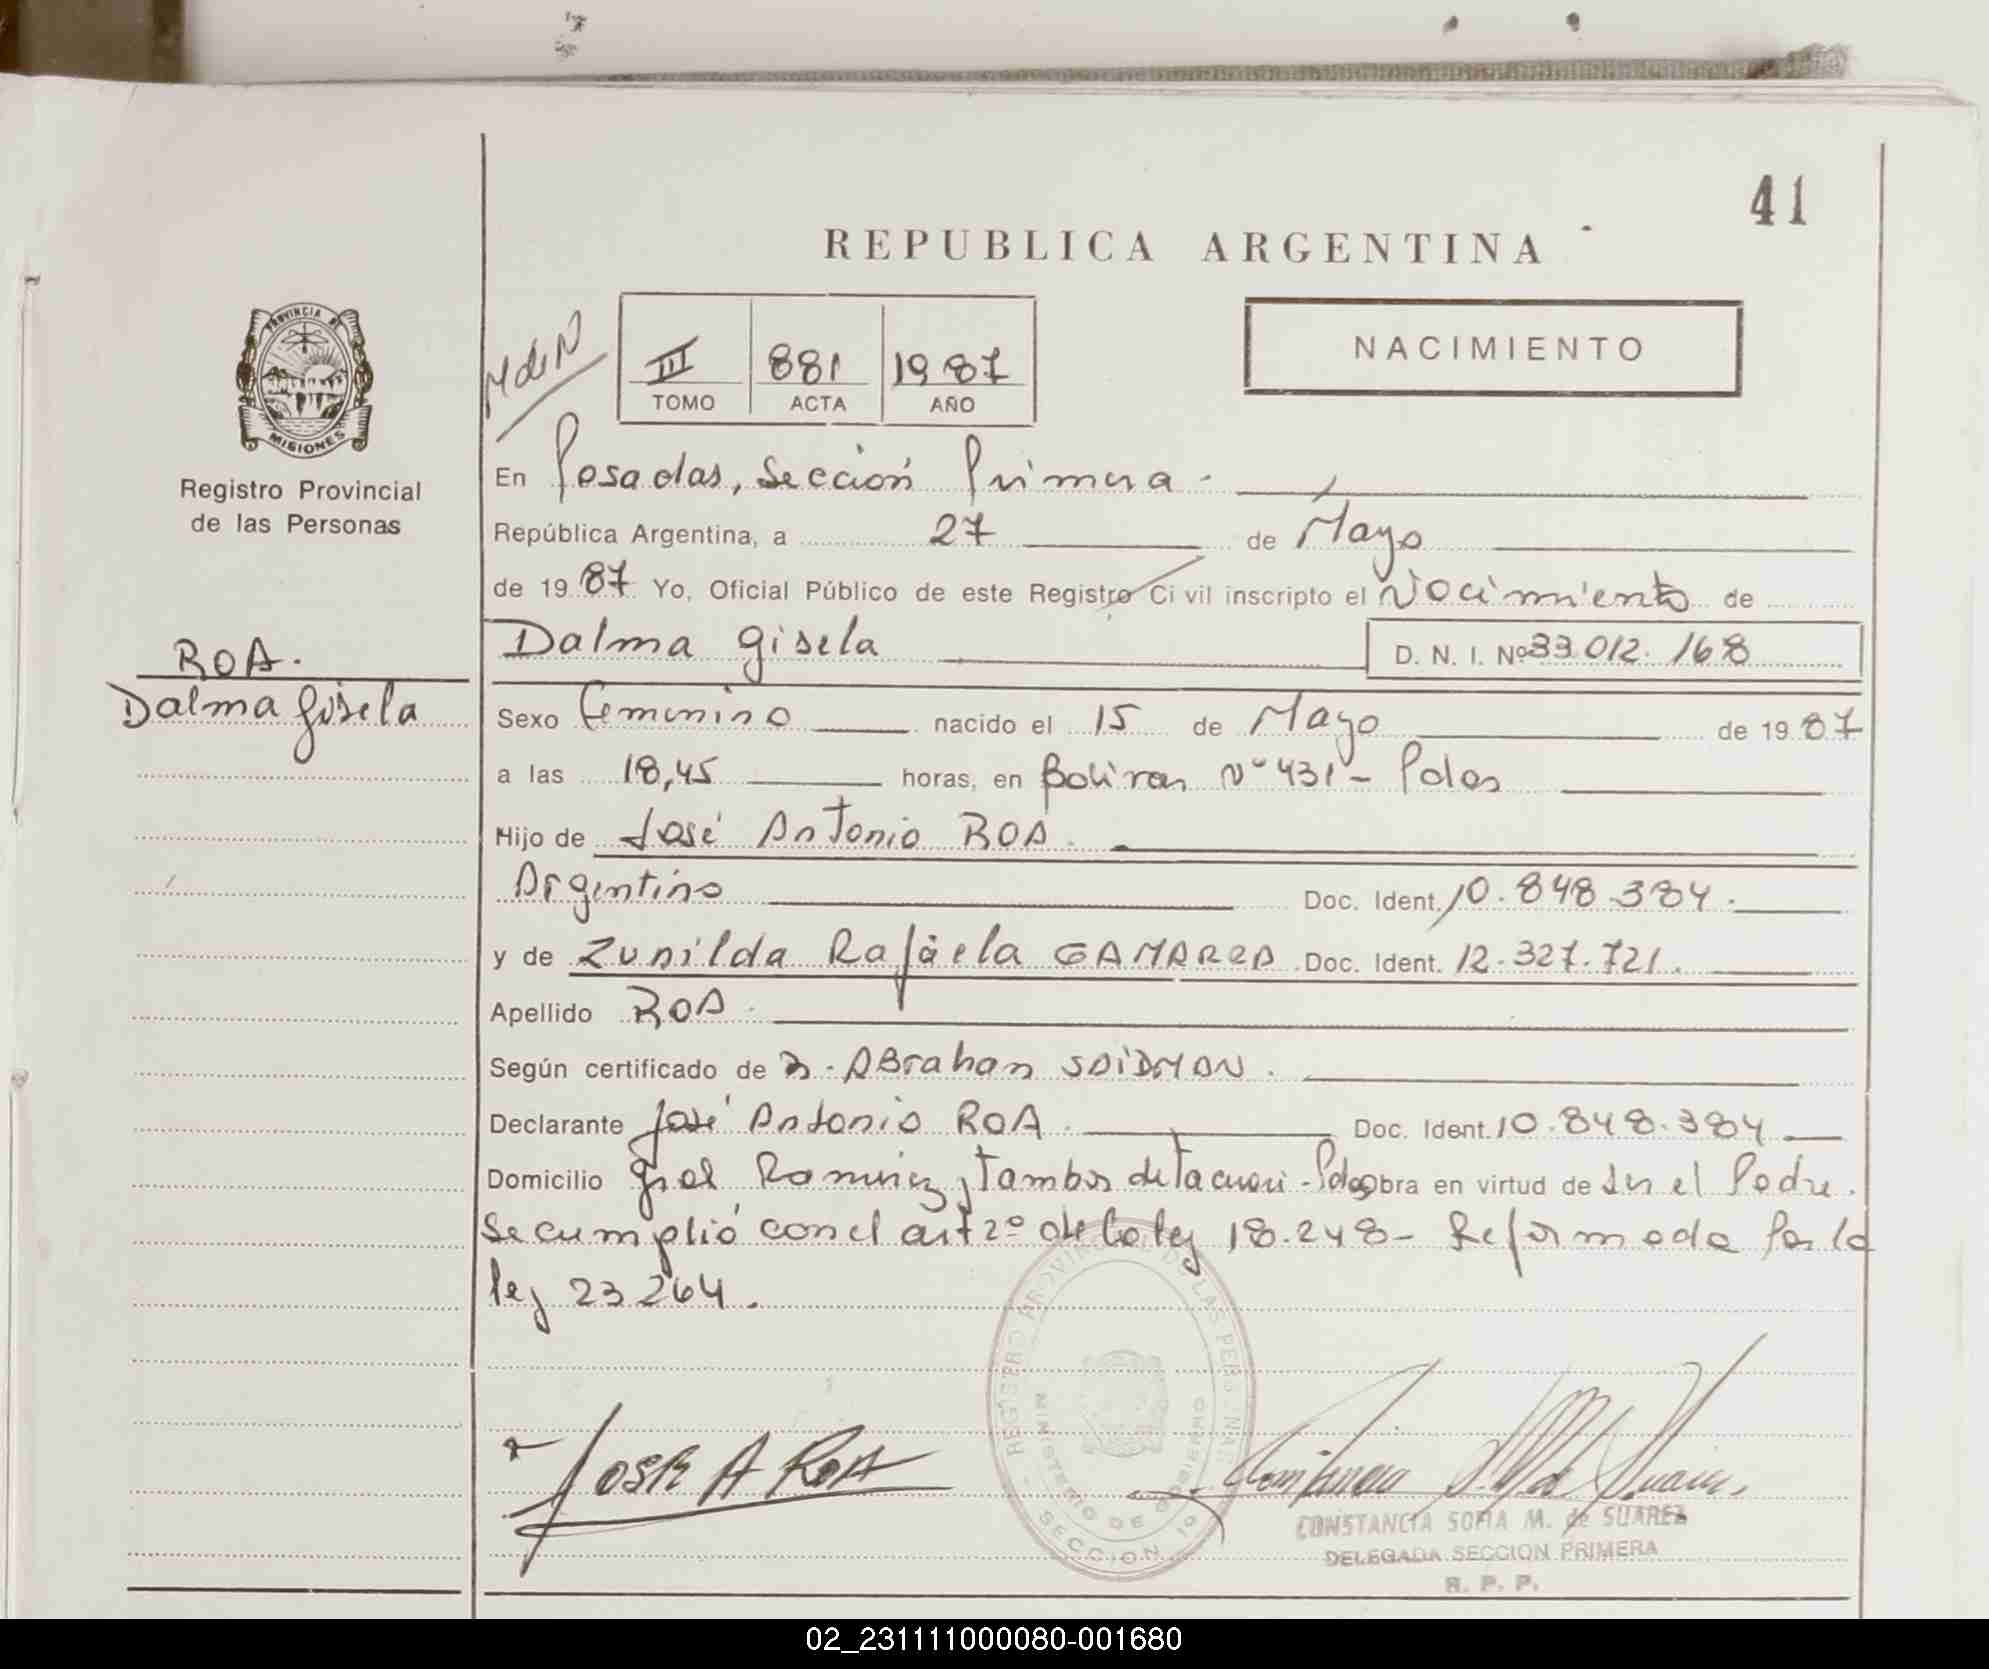 41
REPUBLICA ARGENTINA
NACIMIENTO
M de N
III 881 1987
TOMO ACTA AÑO
PROVINCIA DE
MISIONES
Registro Provincial
de las Personas
ROA.
Dalma Gisela
En Posadas, Sección Primera -
República Argentina, a 27 de Mayo
de 1987 Yo, Oficial Público de este Registro Civil inscripto el Nacimiento de
Dalma Gisela D. N. I. Nº 33.012.168
Sexo Femenino nacido el 15 de Mayo de 1987
a las 18,45 horas, en Bolivar Nº 431 - Pdas
Hijo de José Antonio ROA.
Argentino Doc. Ident. 10.848.384.
y de Zunilda Rafaela GAMARRA Doc. Ident. 12.327.721.
Apellido ROA.
Según certificado de Dr. Abraham SAIDMAN.
Declarante José Antonio ROA. Doc. Ident. 10.848.384
Domicilio Gral Ramirez y Tambor de Tacuari - Pdas obra en virtud de Ser el Padre.
Se cumplió con el art 2º de la ley 18.248 - Reformada por la
ley 23264.
JOSE A ROA
REGISTRO PROVINCIAL DE LAS PERSONAS
MINISTERIO DE GOBIERNO
SECCION 1º
CONSTANCIA SOFIA M. de SUAREZ
DELEGADA SECCION PRIMERA
R. P. P.
02_231111000080-001680